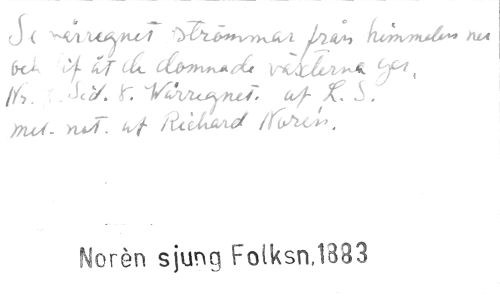 Se vårregnet strömmar från himmelen ner
och lif åt de domnade växterna ger.
Nr. Sid. 8. Wårregnet. af L. S.
mel. not. af Richard Norén.
Norèn sjung Folksn,1883